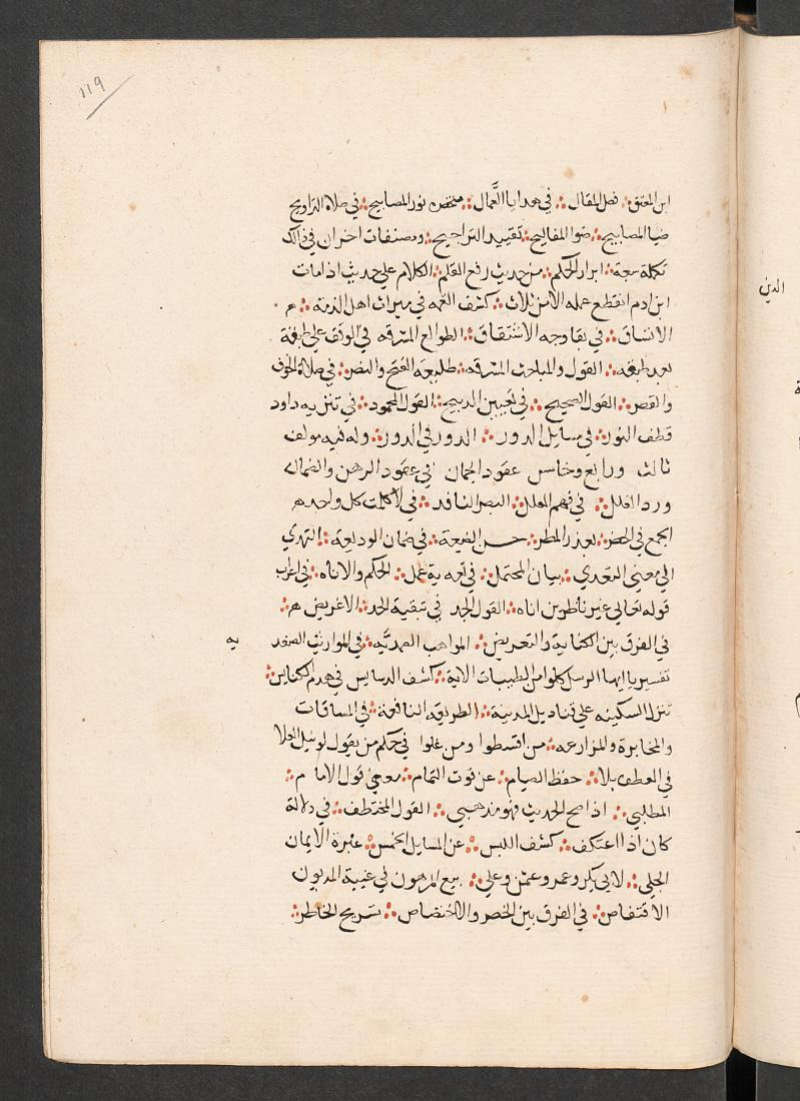 ١١٩
ابن المعتق ؞ فصل المقال ؞ في هدايا العمال ؞ مختصره نور المصابيح ؞ في صلاة التراويح
ضيا المصابيح ؞ ضوا المفاليح ؞ تقييد التراجيح ؞ ومصنفات اخران في ذالك
تكملة سبعة ؞ ابراز الحكم ؞ من حديث رفع القلم ؞ الكلام علي حديث اذا مات
ابن ادم انقطع عمله الا من ثلاث ؞ كشف الغمه في ميراث اهل الذمة ؞ م
الاتساق ؞ في بقا وجه الاشتقاق ؞ الطوالع المشرقه في الوقف علي طبقة
بعد طبقه ؞ القول والمباحث المشرقه ؞ طليعة الفتح والنصر ؞ في صلاة الخوف
والقصر ؞ القول الصحيح ؞ في تعيين الذبيح ؞ القول المحمود ؞ في تنزيه داود
قطف النور ؞ في مسايل الدور ؞ الدور في الدور ؞ وله فيه مولف
ثالث ورابع وخامس عقود الجمان في عقود الرهن والضمان
ورد العلل ؞ في فهم العلل ؞ البصر الناقد ؞ في لا كلمت كل واحد ه
الجمع في الحضر ؞ بعذر المطر ؞ حسن الصنيعة ؞ في ضمان الوديعة ؞ التهدي
الي معني التعدي ؞ بيان المحتمل ؞ في تعدية عمل ؞ الحكم والاناه ؞ في اعراب
قوله تعالي غير ناظرين اناه ؞ القول الجد في تبقية الجد ؞ الاغريض ه ؞
في الفرق بين الكناية والتعريض ؞ المواهب الصمديه ؞ في المواريث الصفد يه
تفسير يا ايها الرسل كلوا من الطيبات الاية ؞ كشف الدسايس في هدم الكنايس ؞
تنزل السكينه علي قناديل المدينة ؞ الطريقه النافعة ؞ في المساقات
والمخابرة والمزارعه ؞ من اقسطوا ومن غلوا في حكم من يقول لو ؞ نيل العلا
في العطف بلا ؞ حفظ الصيام ؞ عن فوت التمام ؞ معني قول الامام ؞
المطلبي ؞ اذا صح الحديث فهو مذهبي ؞ القول المختطف ؞ في دلالة
كان اذا اعتكف ؞ كشف اللبس ؞ عن المسايل الخمس ؞ غيرة الايمان
الجلي ؞ لابي بكر وعمر وعثمن وعلي ؞ بيع المرهون في غيبة المديون
الاقتناص ؞ في الفرق بين الحصر والاختصاص ؞ تسريح الخاطر ؞
الدين